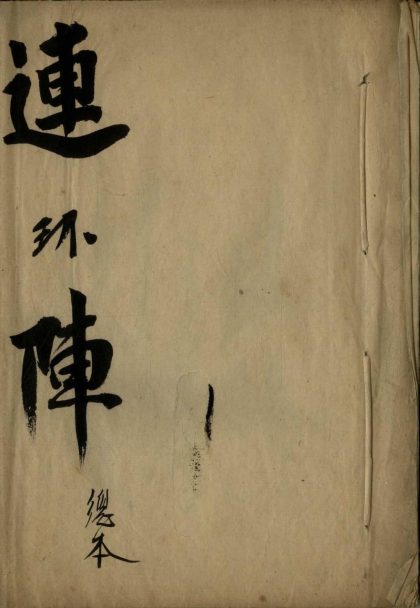 連环陣
總本